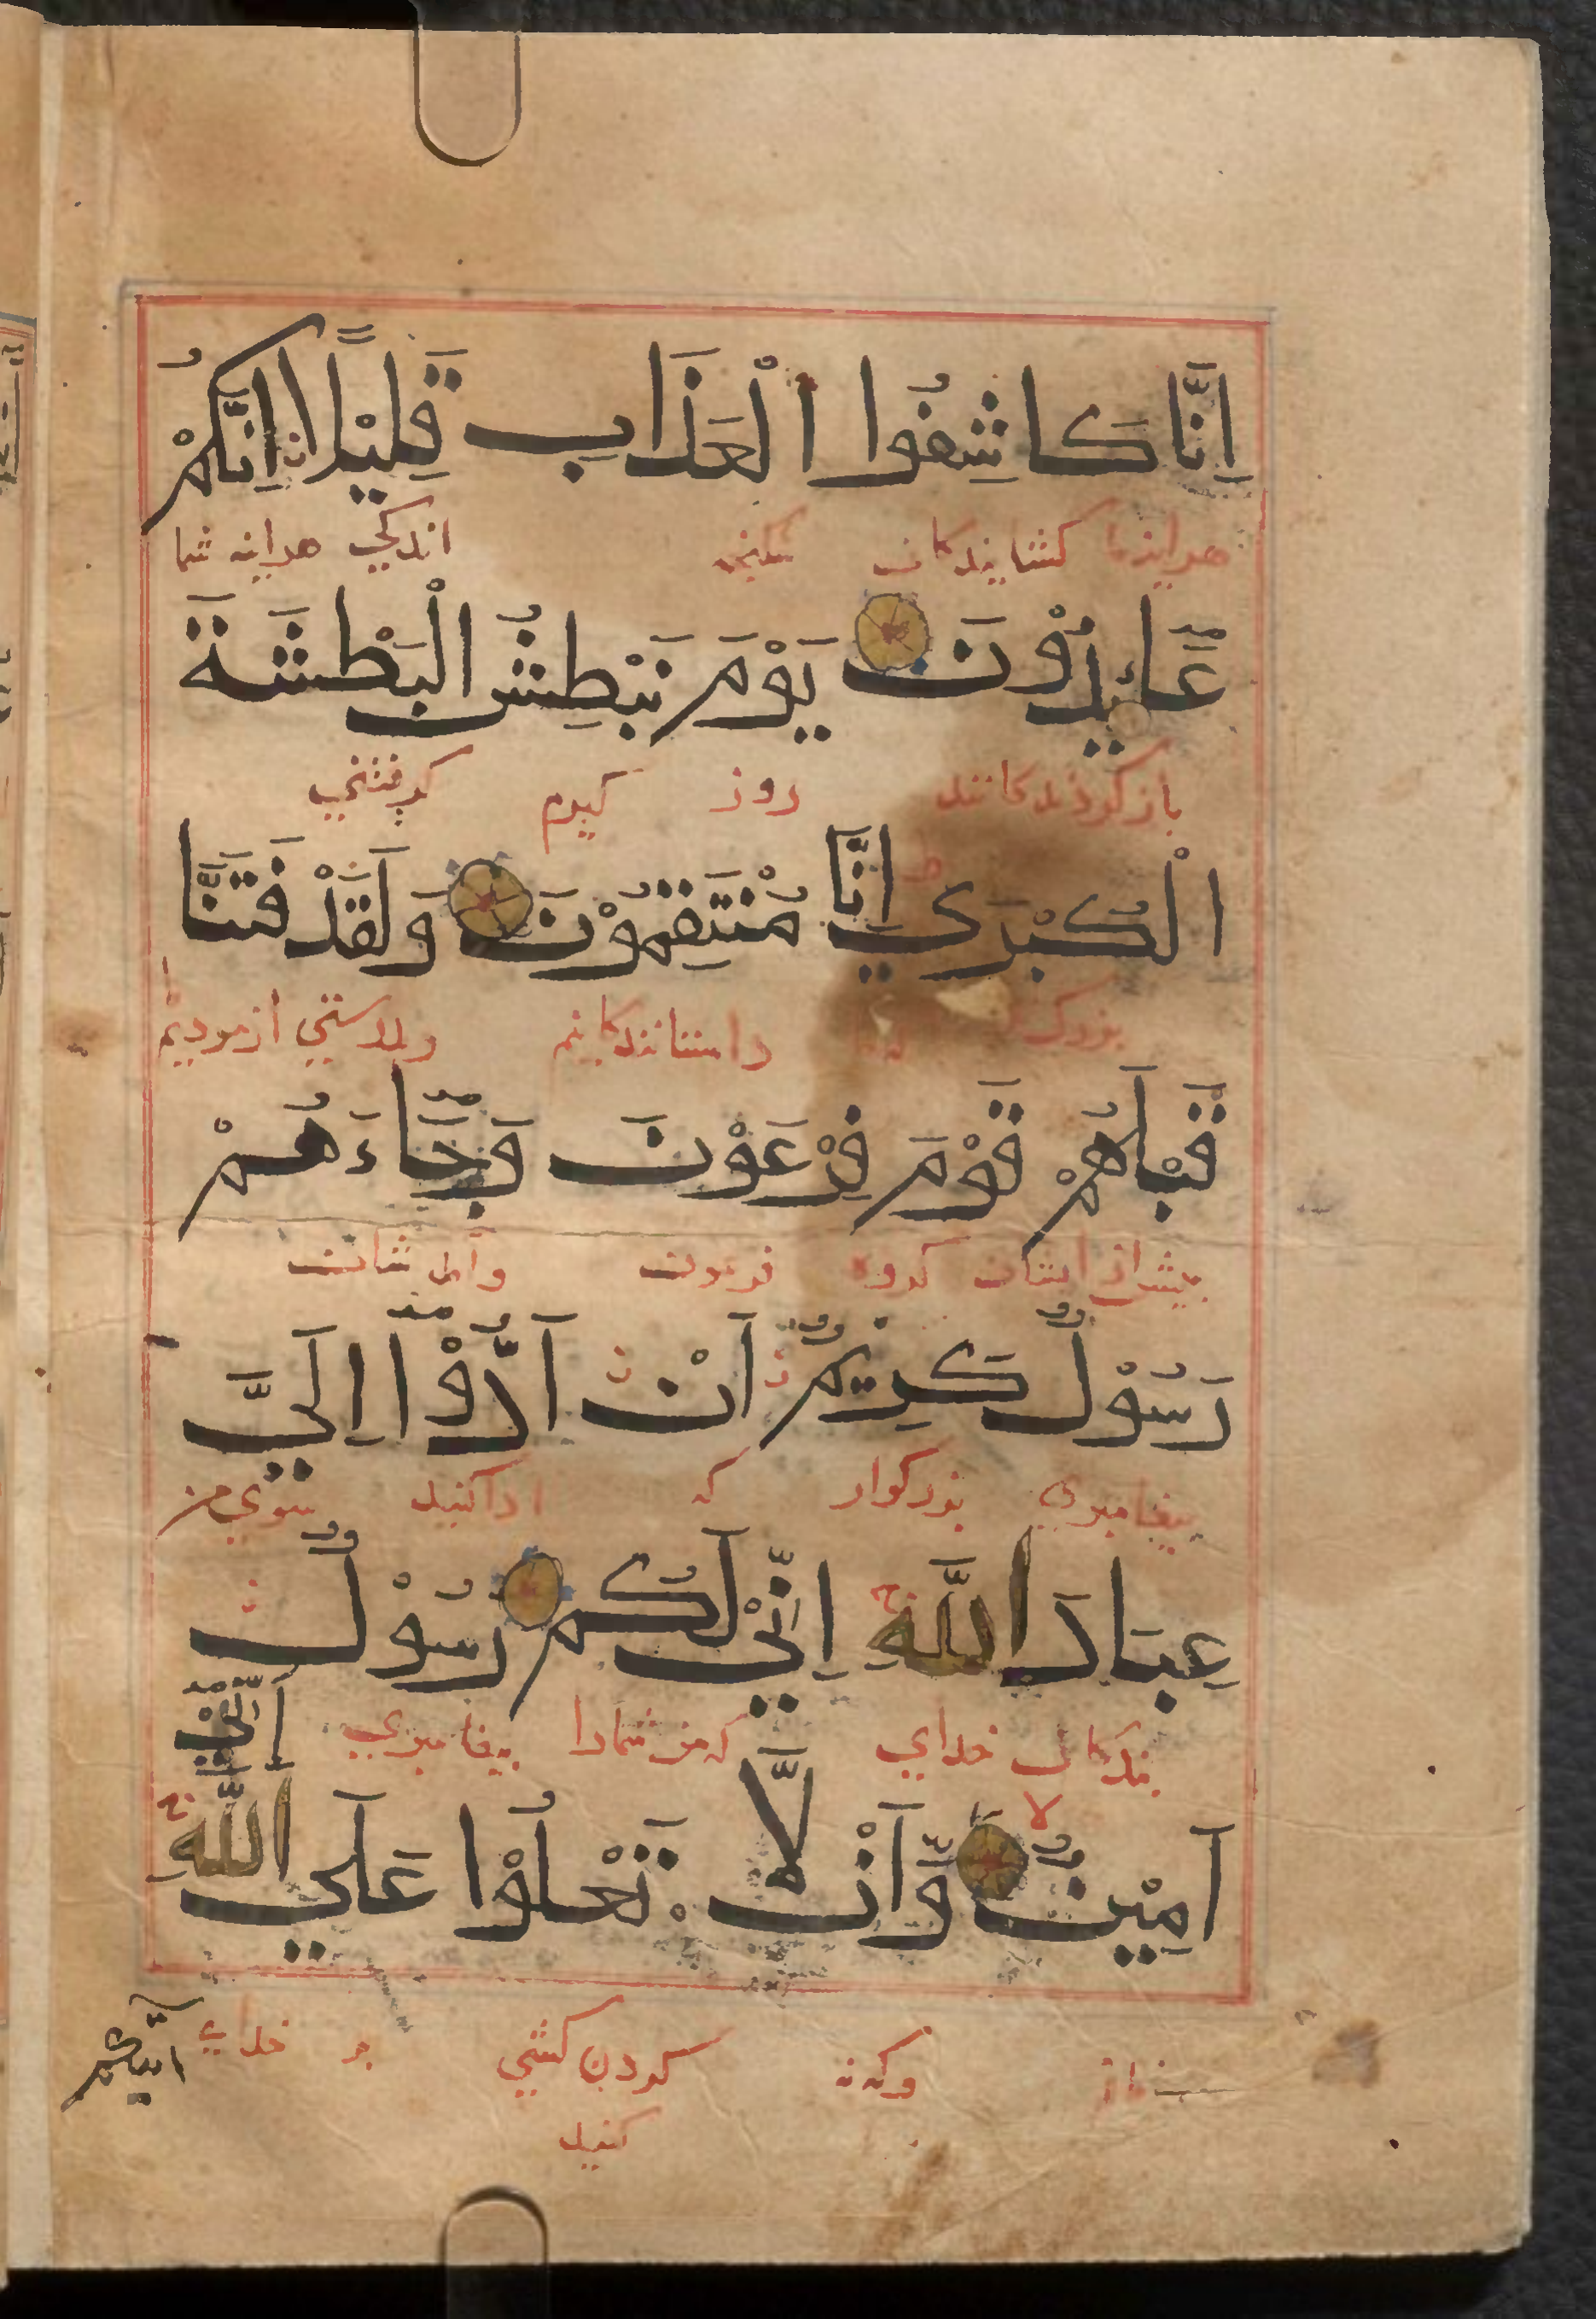 اِنَّا كَاشِفُوا الْعَذَابِ قَلِيْلًا اِنَّكُمْ
هراینه ما کشایندکان شکنجه اندکی هراینه شما
عَآئِدُوْنَ يَوْمَ نَبْطِشُ الْبَطْشَةَ
باز کردندکانند روز کیرم کرفتنی
الْكُبْرَي اِنَّا مُنْتَقِمُوْنَ وَلَقَدْ فَتَنَّا
بزرک داستانندکانیم وبدرستی ازمودیم
قَبْلَهُمْ قَوْمَ فِرْعَوْنَ وَجَآءَهُمْ
پیش از ایشان کروه فرعون وآمد شان
رَسُوْلٌ كَرِيْمٌ اَنْ اَدُّوْٓا اِلَيَّ
پیغامبری بزرکوار که ادا کنید سوی من
عِبَادَ اللّٰهِ اِنِّيْ لَكُمْ رَسُوْلٌ
بندکان خدای که من شمارا پیغامبری
اَمِيْنٌ وَّاَنْ لَّا تَعْلُوْا عَلَي اللّٰهِ اِنِّيْٓ
وکه نه کردن کشی بر خدای
کنید
اتيكم